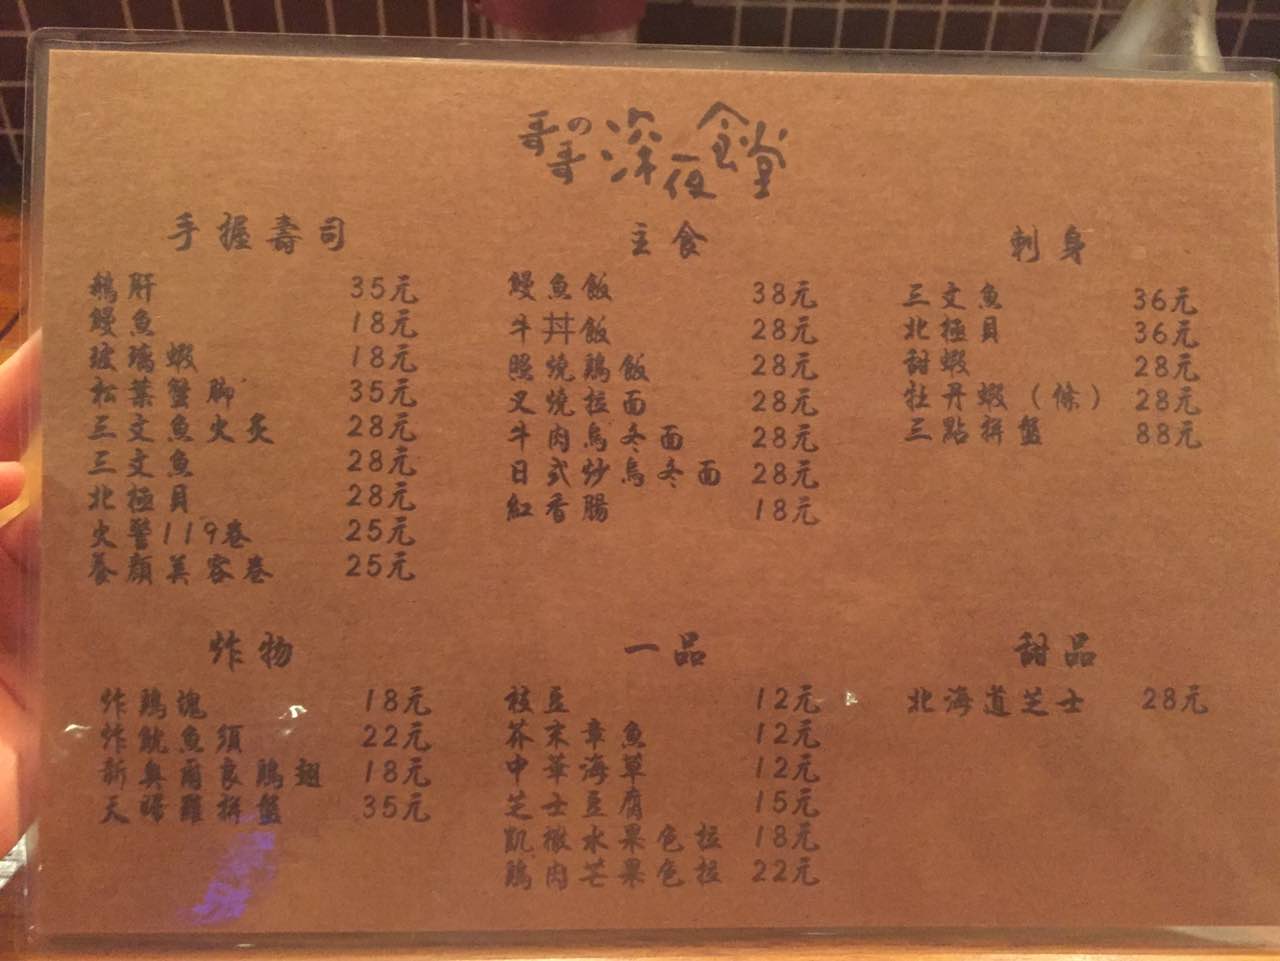 哥の哥 深夜食堂
手握壽司
鵝肝 35元
鰻魚 18元
玻璃蝦 18元
松葉蟹腳 35元
三文魚火炙 28元
三文魚 28元
北極貝 28元
火警119卷 25元
養顏美容卷 25元
主食
鰻魚飯 38元
牛丼飯 28元
照燒鷄飯 28元
叉燒拉面 28元
牛肉烏冬面 28元
日式炒烏冬面 28元
紅香腸 18元
刺身
三文魚 36元
北極貝 36元
甜蝦 28元
牡丹蝦（條） 28元
三點拼盤 88元
炸物
炸鷄塊 18元
炸魷魚須 22元
新奧爾良鷄翅 18元
天婦羅拼盤 35元
一品
枝豆 12元
芥末章魚 12元
中華海草 12元
芝士豆腐 15元
凱撒水果色拉 18元
鷄肉芒果色拉 22元
甜品
北海道芝士 28元